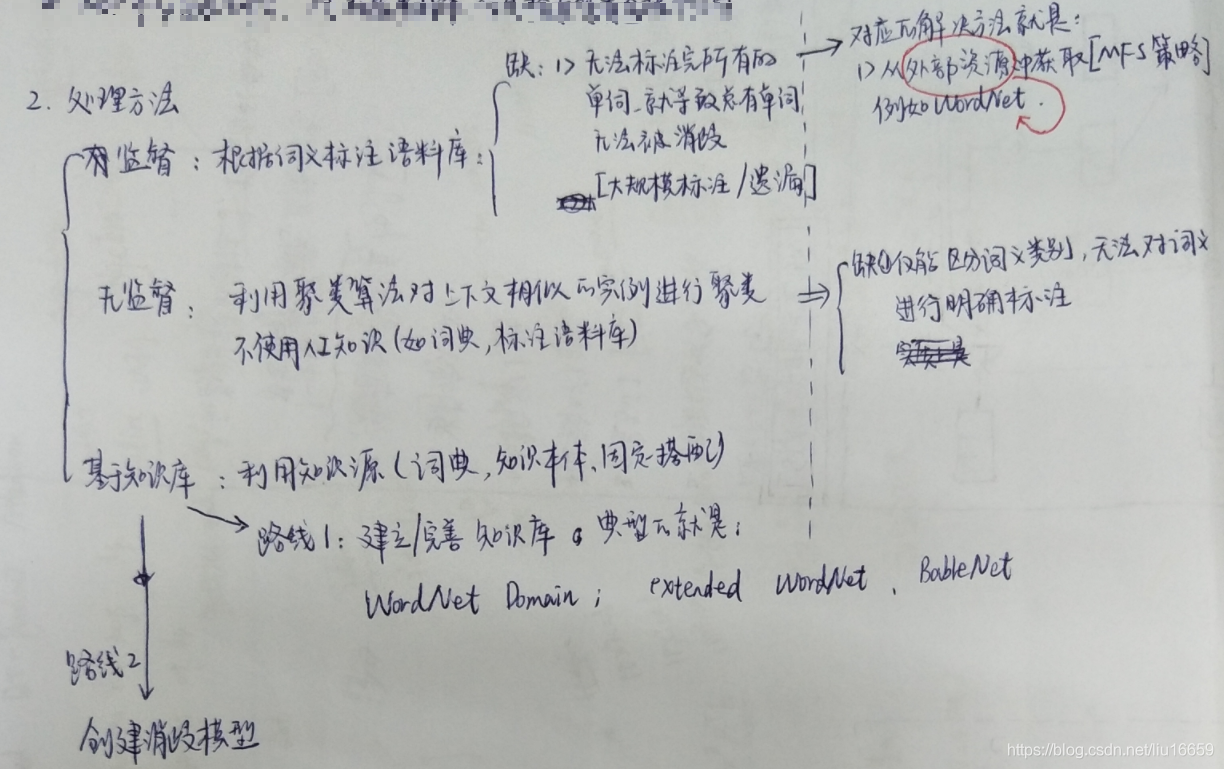 2. 处理方法
有监督：根据词义标注语料库：
缺：1> 无法标注完所有的
单词、就导致总有单词
无法被消歧
[大规模标注/遗漏]
对应的解决方法就是：
1> 从外部资源中获取[MFS策略]
例如WordNet.
无监督： 利用聚类算法对上下文相似的实例进行聚类
不使用人工知识(如词典,标注语料库)
缺①仅能区分词义类别,无法对词义
进行明确标注
基于知识库 ：利用知识源(词典,知识本体、固定搭配)
路线1：建立/完善知识库。典型的就是：
WordNet Domain； extended WordNet、BableNet
路线2
创建消歧模型
https://blog.csdn.net/liu16659